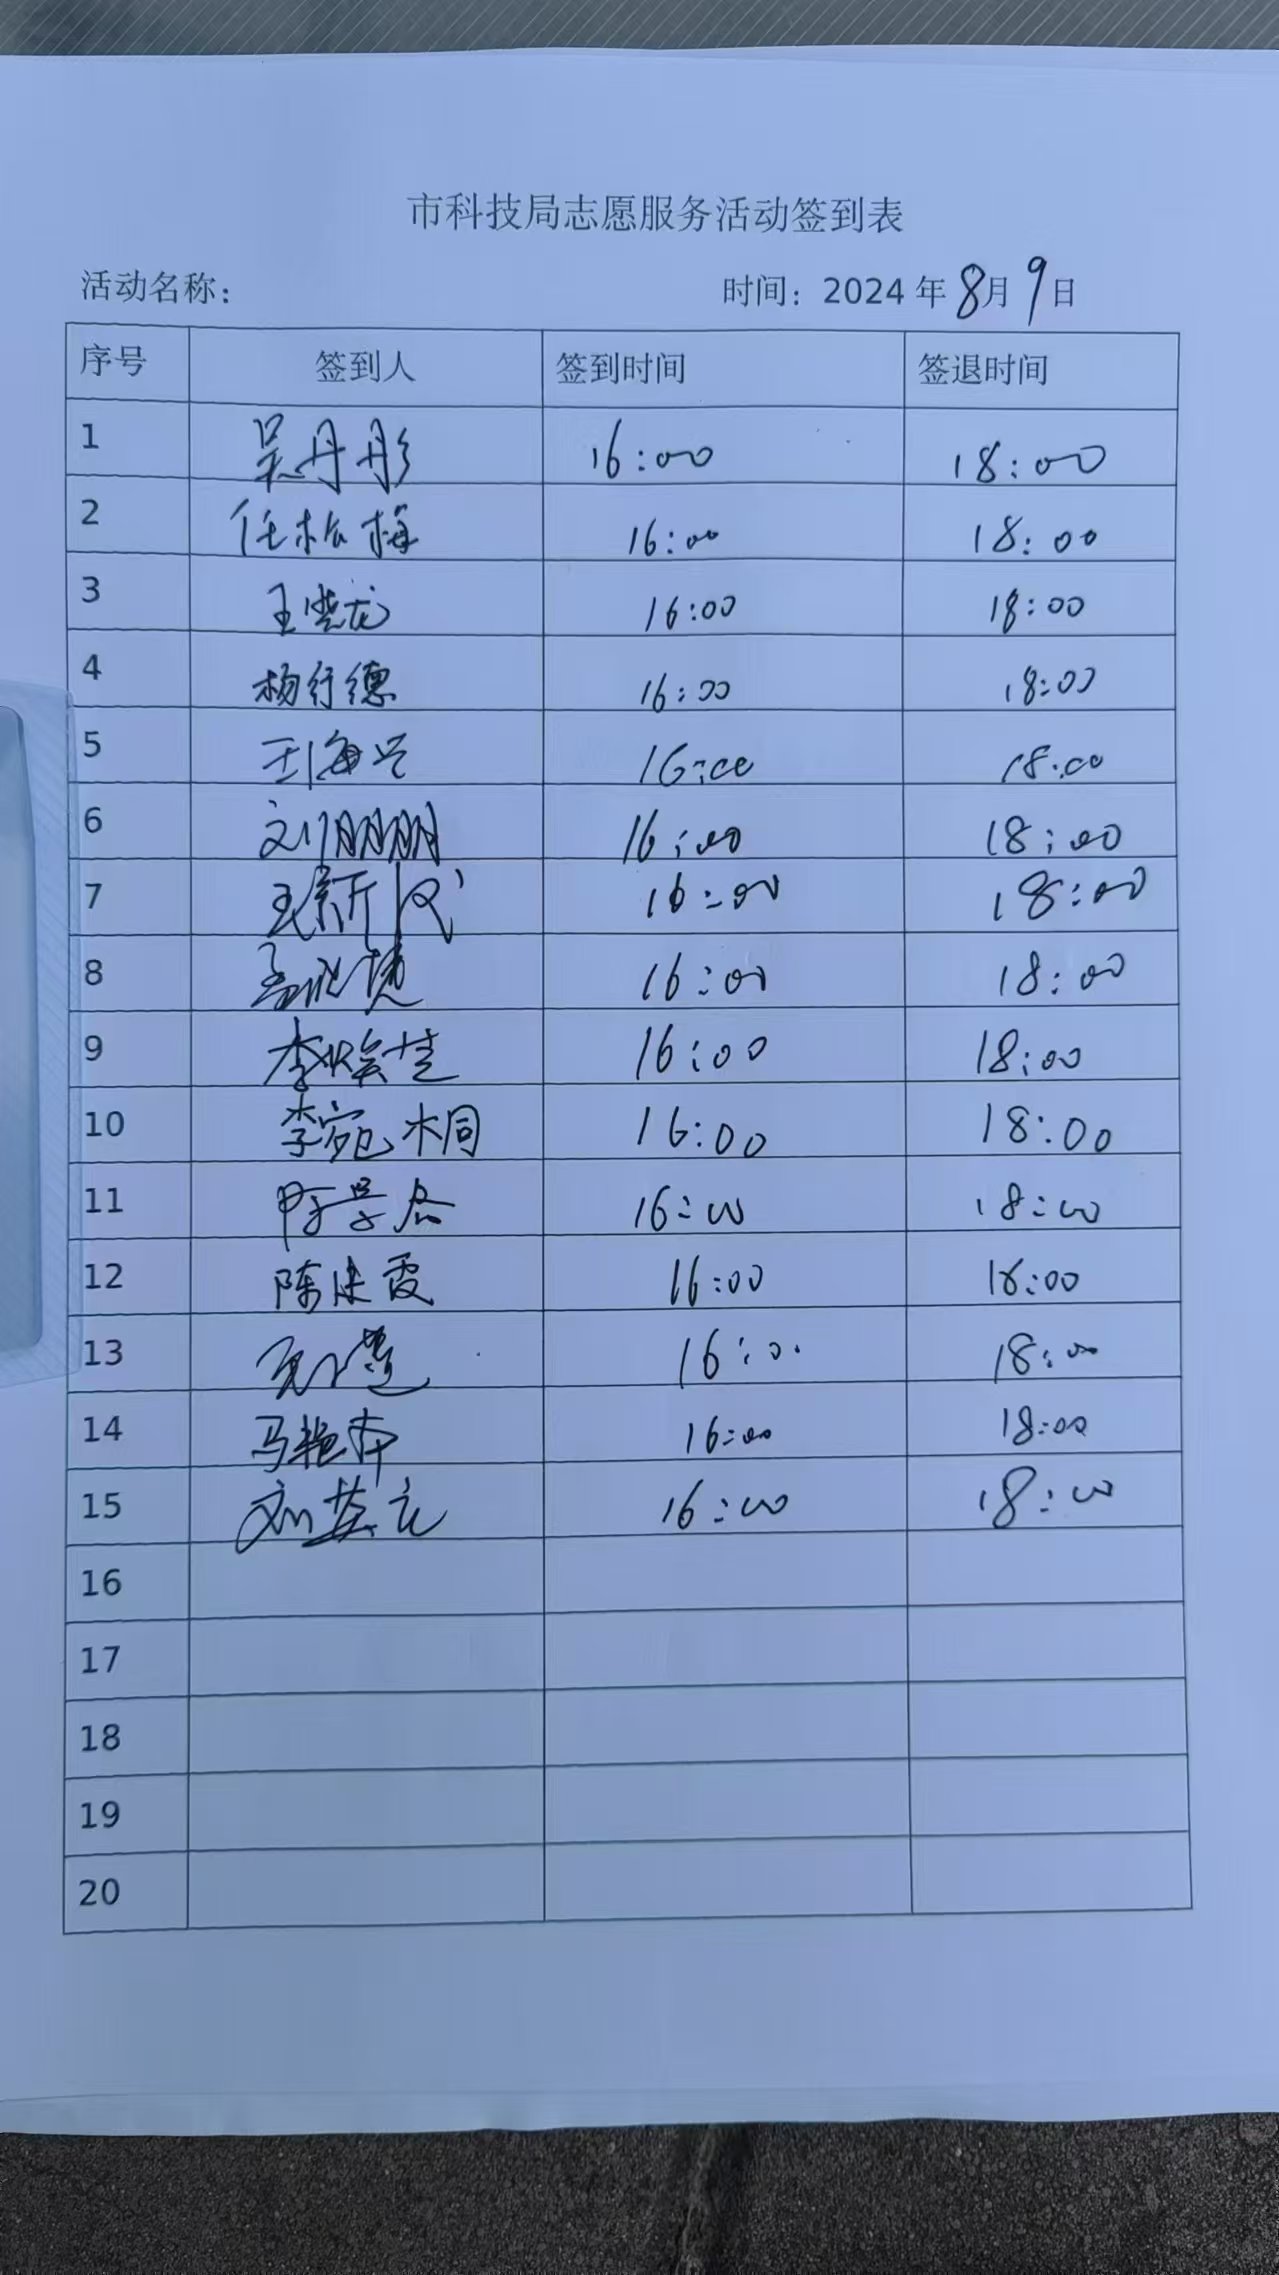 市科技局志愿服务活动签到表
活动名称： 时间：2024 年 8月 9日
序号 签到人 签到时间 签退时间
1 吴丹彤 16:00 18:00
2 任松梅 16:00 18:00
3 王晓龙 16:00 18:00
4 杨行德 16:00 18:00
5 王海兴 16:00 18:00
6 刘朋朋 16:00 18:00
7 王新 16:00 18:00
8 孟 16:00 18:00
9 李焕芝 16:00 18:00
10 李宛桐 16:00 18:00
11 陈景 16:00 18:00
12 陈建霞 16:00 18:00
13 16:00 18:00
14 马艳 16:00 18:00
15 刘 16:00 18:00
16
17
18
19
20